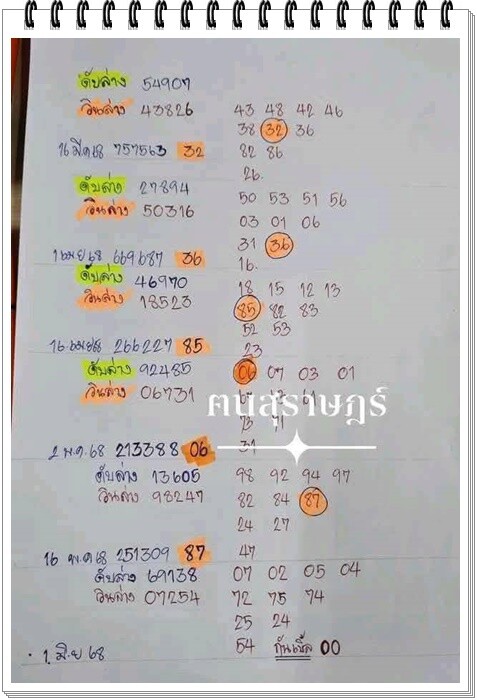 ดับล่าง 54907
วินล่าง 43826 43 48 42 46
38 32 36
16 มีค 68 757563 32 82 86
26.
ดับล่าง 27894
50 53 51 56
วินล่าง 50316
03 01 06
31 36
1 เมย 68 669687 36 16.
ดับล่าง 46970
18 15 12 13
วินล่าง 18523
85 82 83
52 53
16 เมย 68 266227 85 23
ดับล่าง 92485 06 07 03 01
วินล่าง 06731
คนสุราษฎร์
73 71
31
2 พ.ค. 68 213388 06
ดับล่าง 13605 98 92 94 97
วินล่าง 98247 82 84 87
24 27
16 พ.ค 68 251309 87 47
ดับล่าง 69138 07 02 05 04
วินล่าง 07254 72 75 74
25 24
1. มิ.ย 68 54 กันเบิ้ล 00